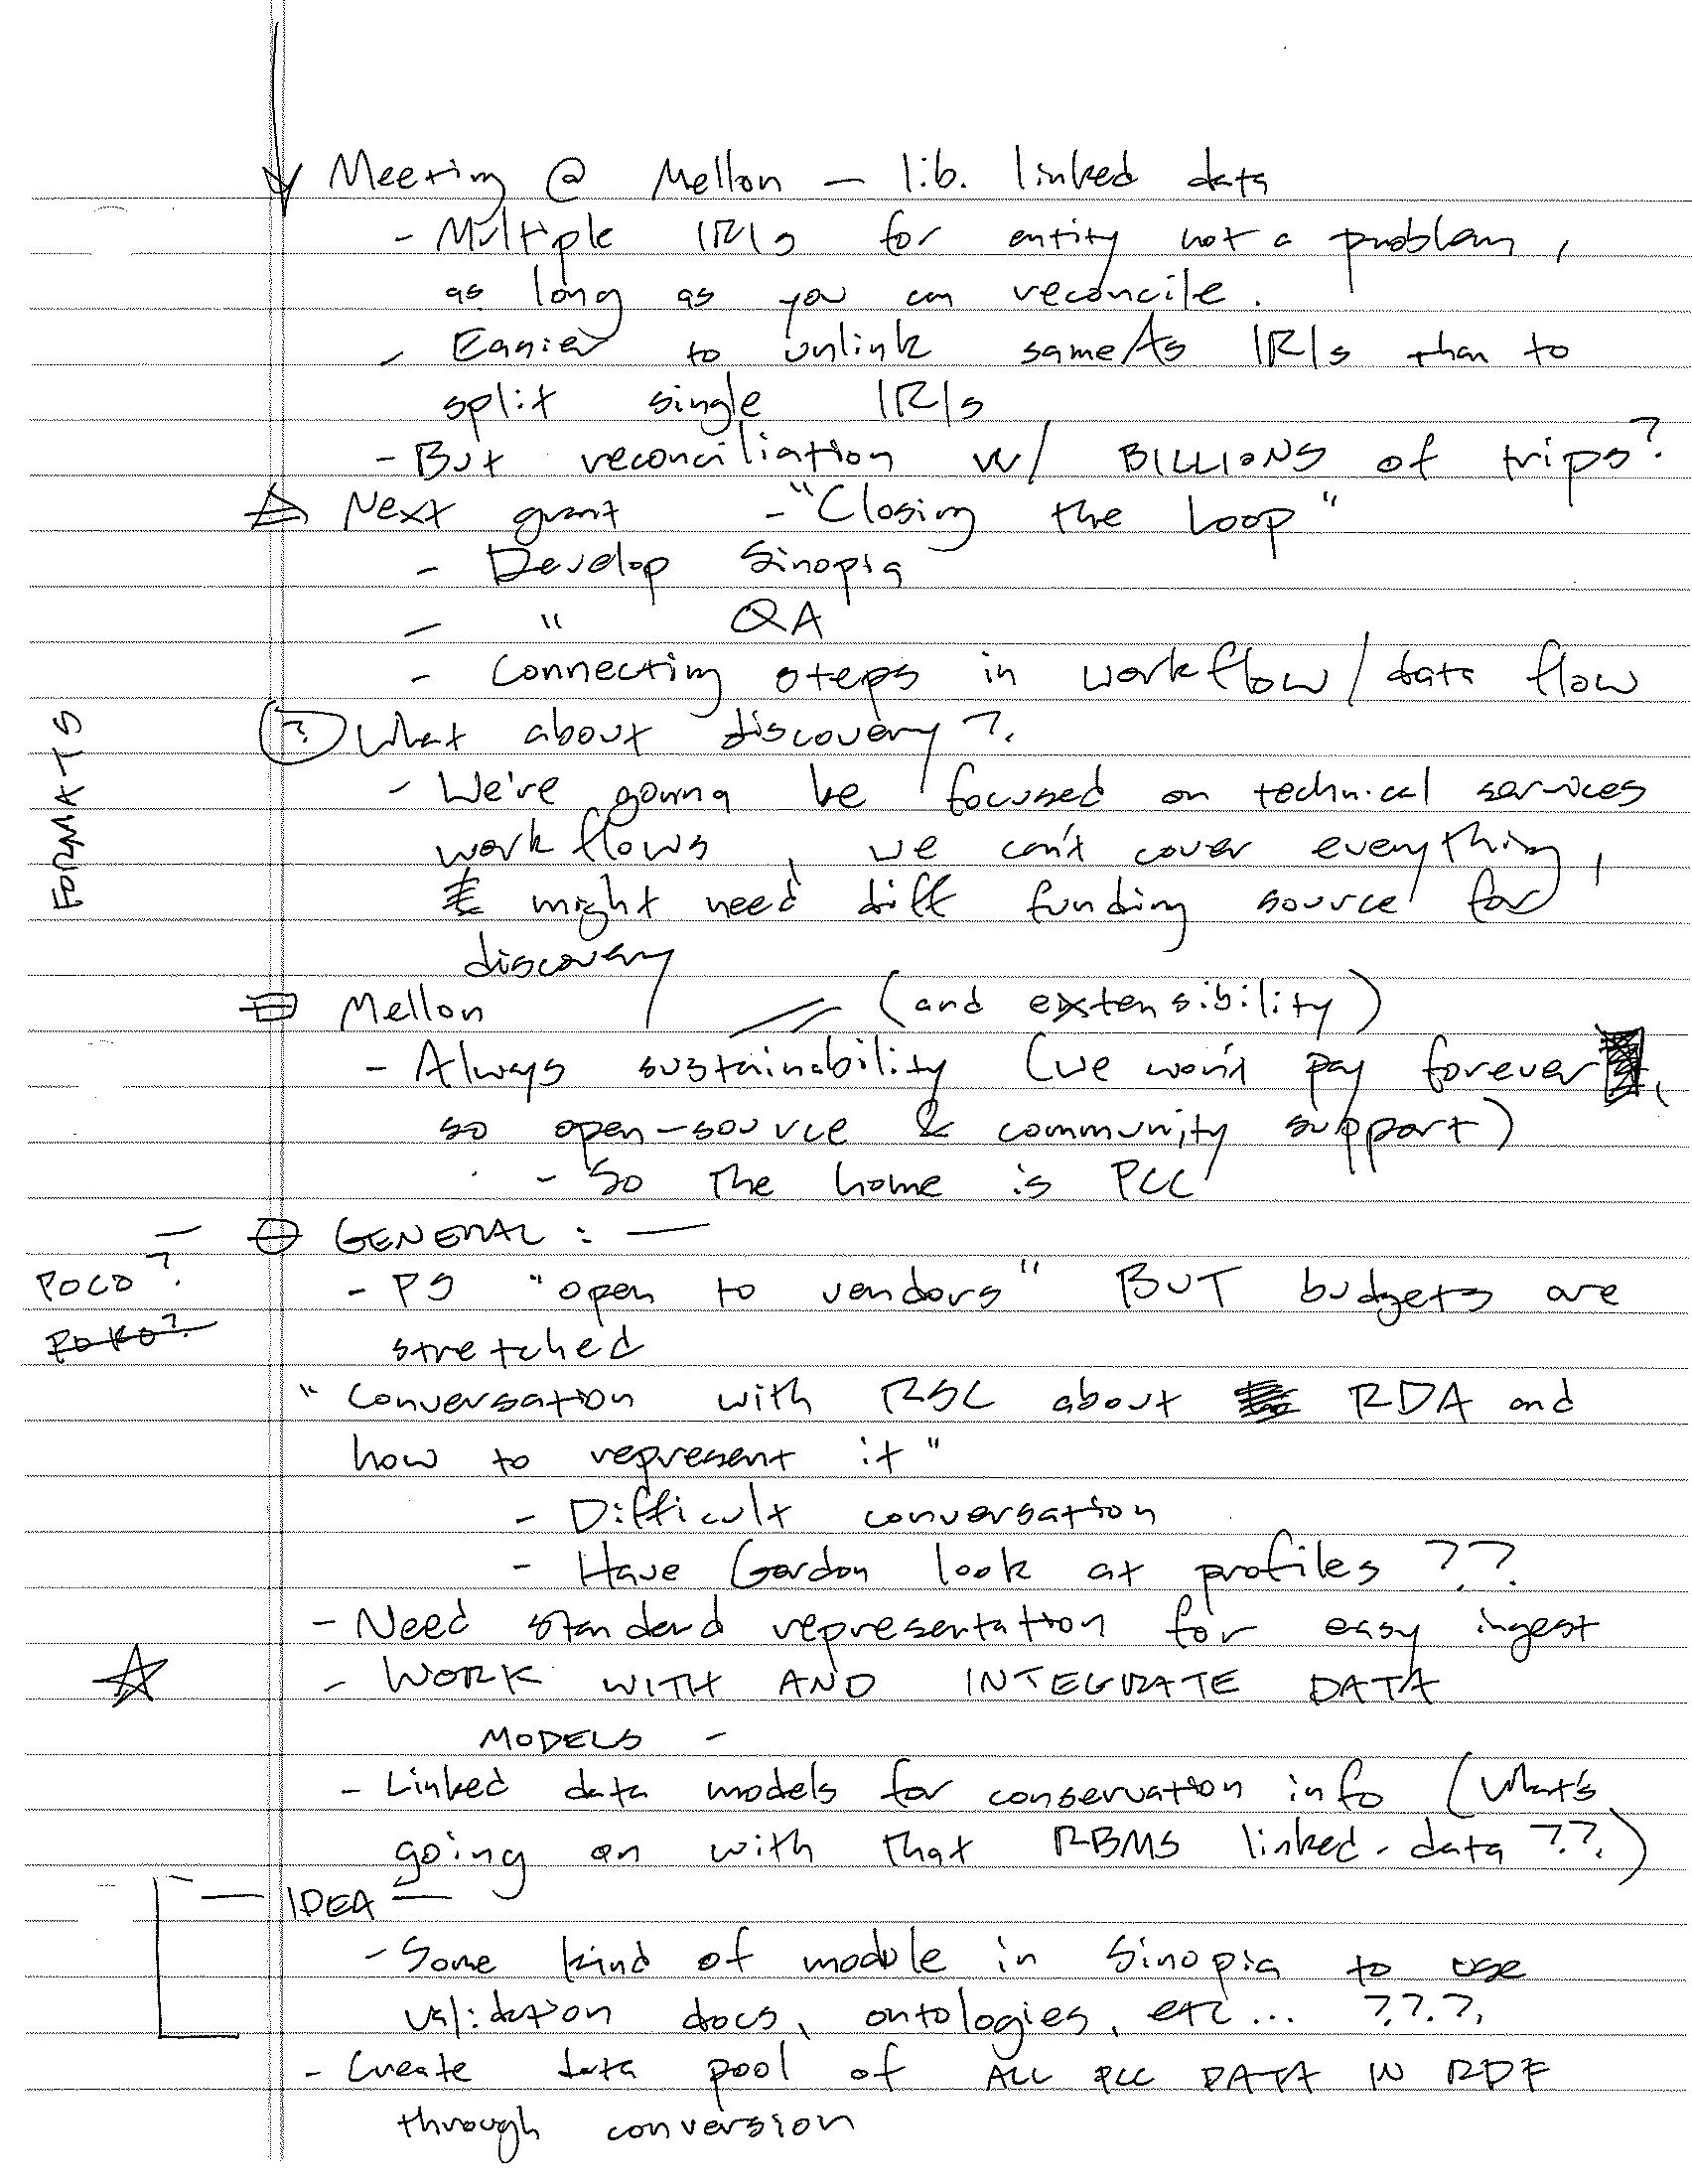 Meeting @ Mellon — lib. linked data
- Multiple IRIs for entity not a problem,
as long as you can reconcile.
- Easier to unlink sameAs IRIs than to
split single IRIs
- But reconciliation w/ BILLIONS of trips?
Next grant - "Closing the Loop"
- Develop Sinopia
- " QA
- Connecting steps in workflow / data flow
? What about discovery?
- We're gonna be focused on technical services
workflows, we can't cover everything,
might need diff funding source for
discovery
FORMATS
Mellon (and extensibility)
- Always sustainability (we won't pay forever,
so open-source & community support)
- So the home is PCC
— GENERAL : —
POCO?
POKO?
- PS "open to vendors" BUT budgets are
stretched
"Conversation with RSC about RDA and
how to represent it"
- Difficult conversation
- Have Gordon look at profiles ??
- Need standard representation for easy ingest
- WORK WITH AND INTEGRATE DATA
MODELS -
- Linked data models for conservation info (What's
going on with that RBMS linked-data ??)
— IDEA —
- Some kind of module in Sinopia to use
validation docs, ontologies, etc... ???
- Create data pool of ALL PCC DATA IN RDF
through conversion